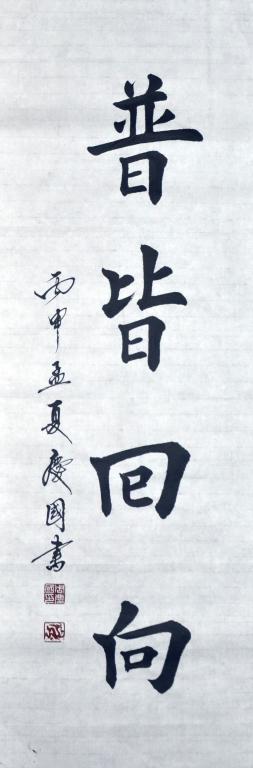 普皆回向
丙申孟夏慶國書